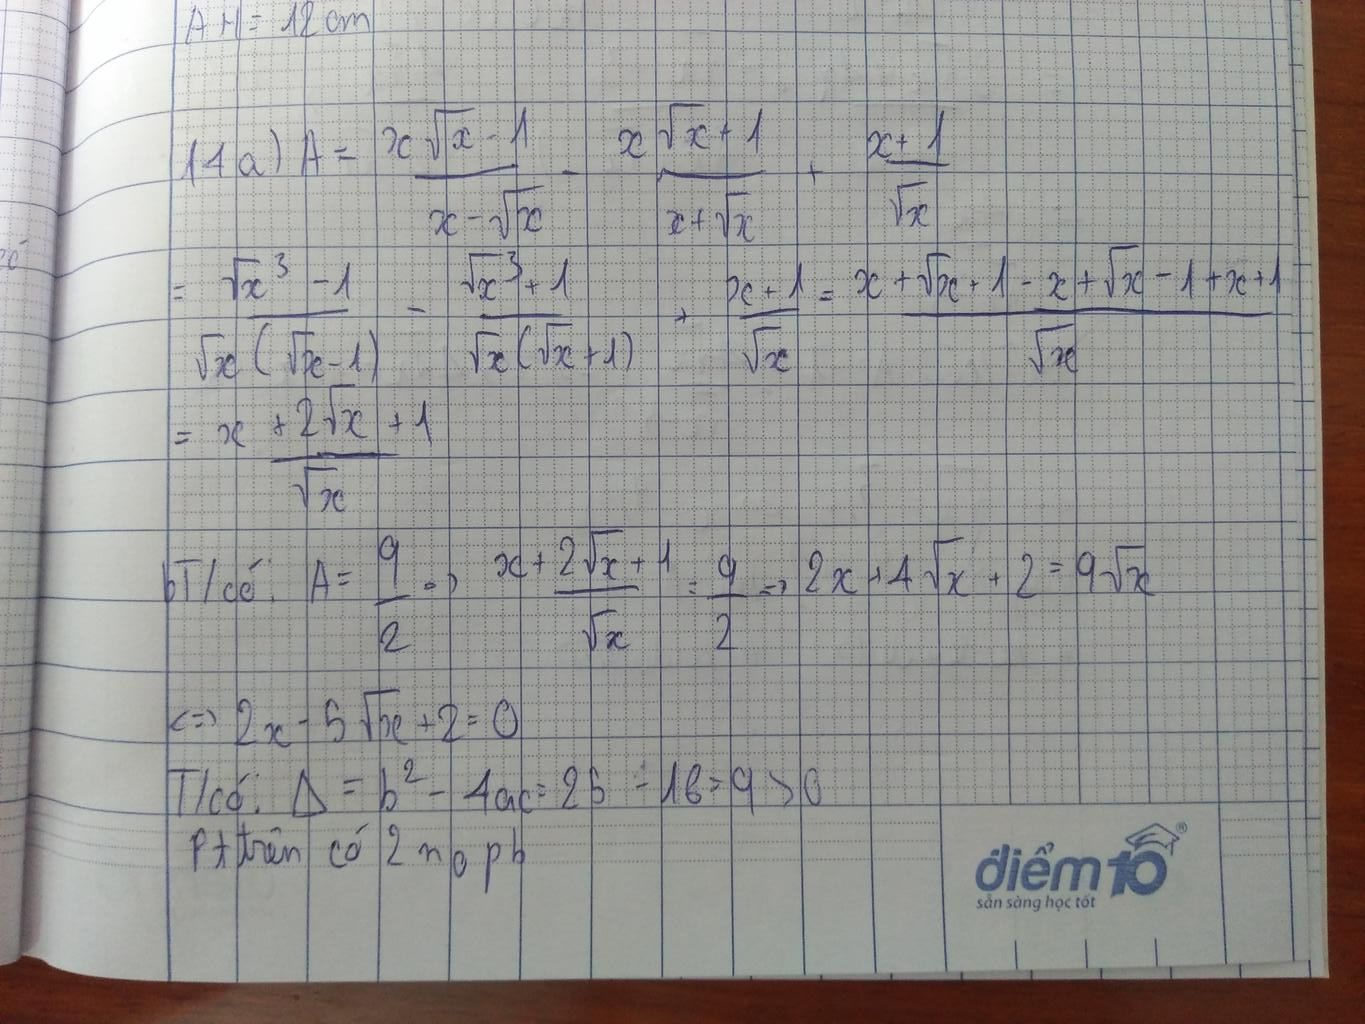 AH = 12 cm
14a) A = (x√x - 1)/(x - √x) - (x√x + 1)/(x + √x) + (x + 1)/√x
= (√x³ - 1)/(√x(√x - 1)) - (√x³ + 1)/(√x(√x + 1)) + (x + 1)/√x = (x + √x + 1 - x + √x - 1 + x + 1)/√x
= (x + 2√x + 1)/√x
bT/có: A = 9/2 => (x + 2√x + 1)/√x = 9/2 => 2x + 4√x + 2 = 9√x
<=> 2x - 5√x + 2 = 0
T/có: Δ = b² - 4ac = 25 - 16 = 9 > 0
Pt trên có 2 no pb
điểm10®
sẵn sàng học tốt